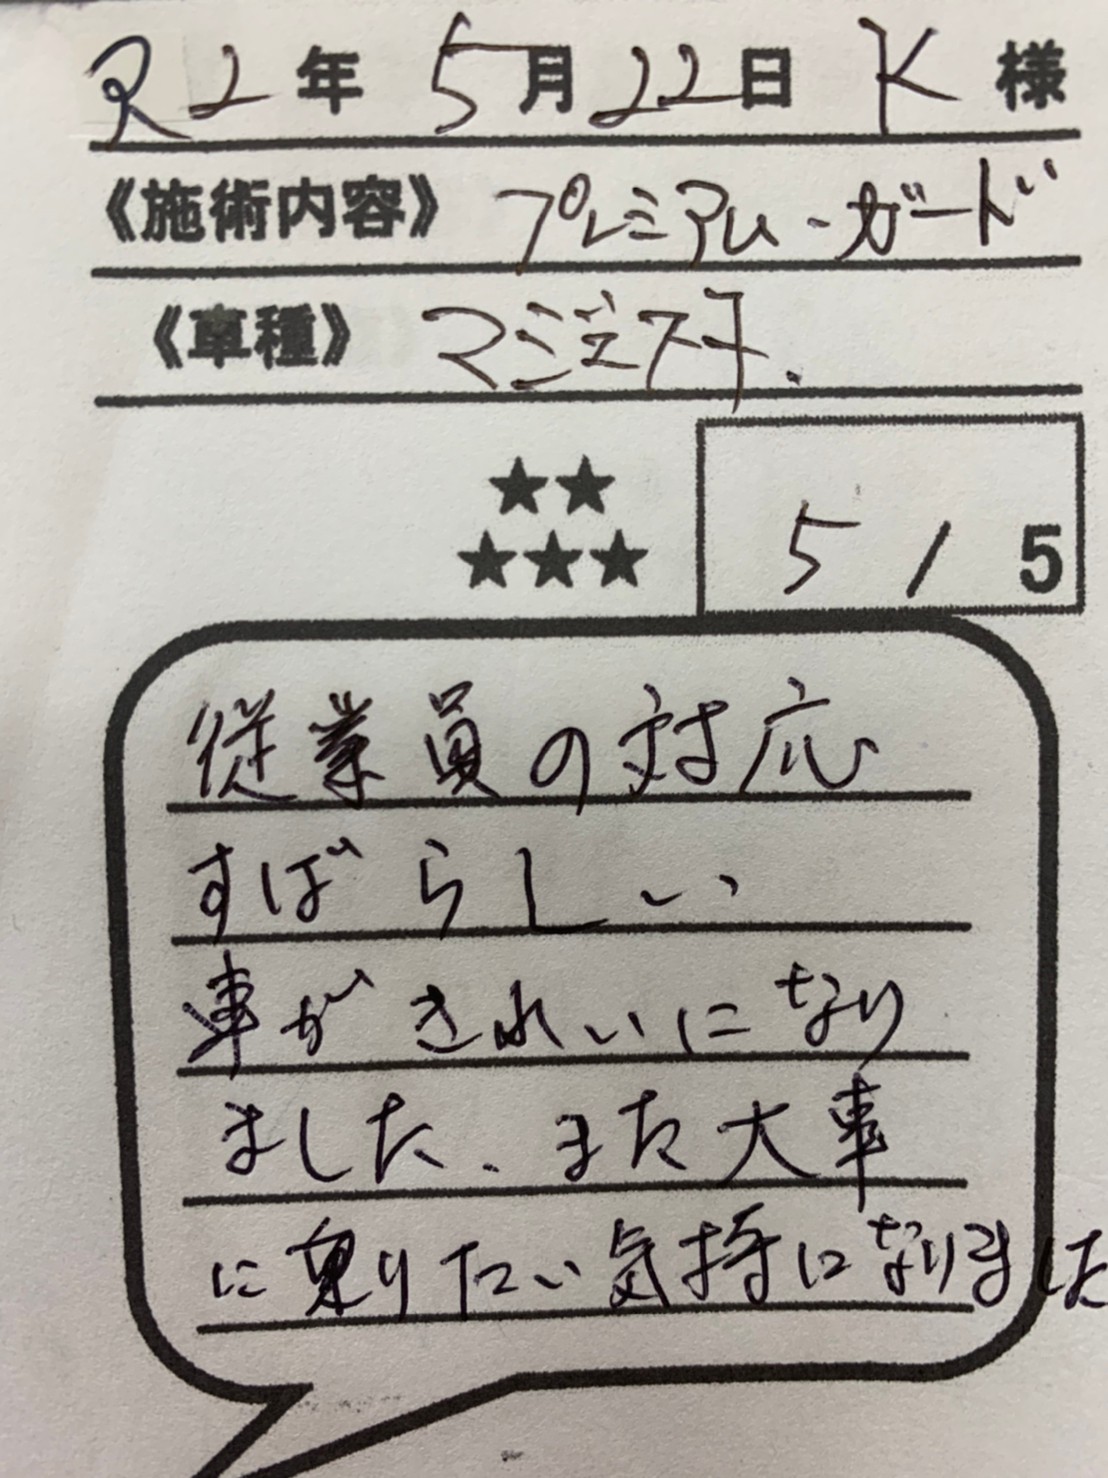 R2年 5月22日 K 様
《施術内容》 プレミアム・ガード
《車種》 マジェスティ.
★★
★★★
5 / 5
従業員の対応
すばらしい
車がきれいになり
ました、また大事
に乗りたい気持になりました